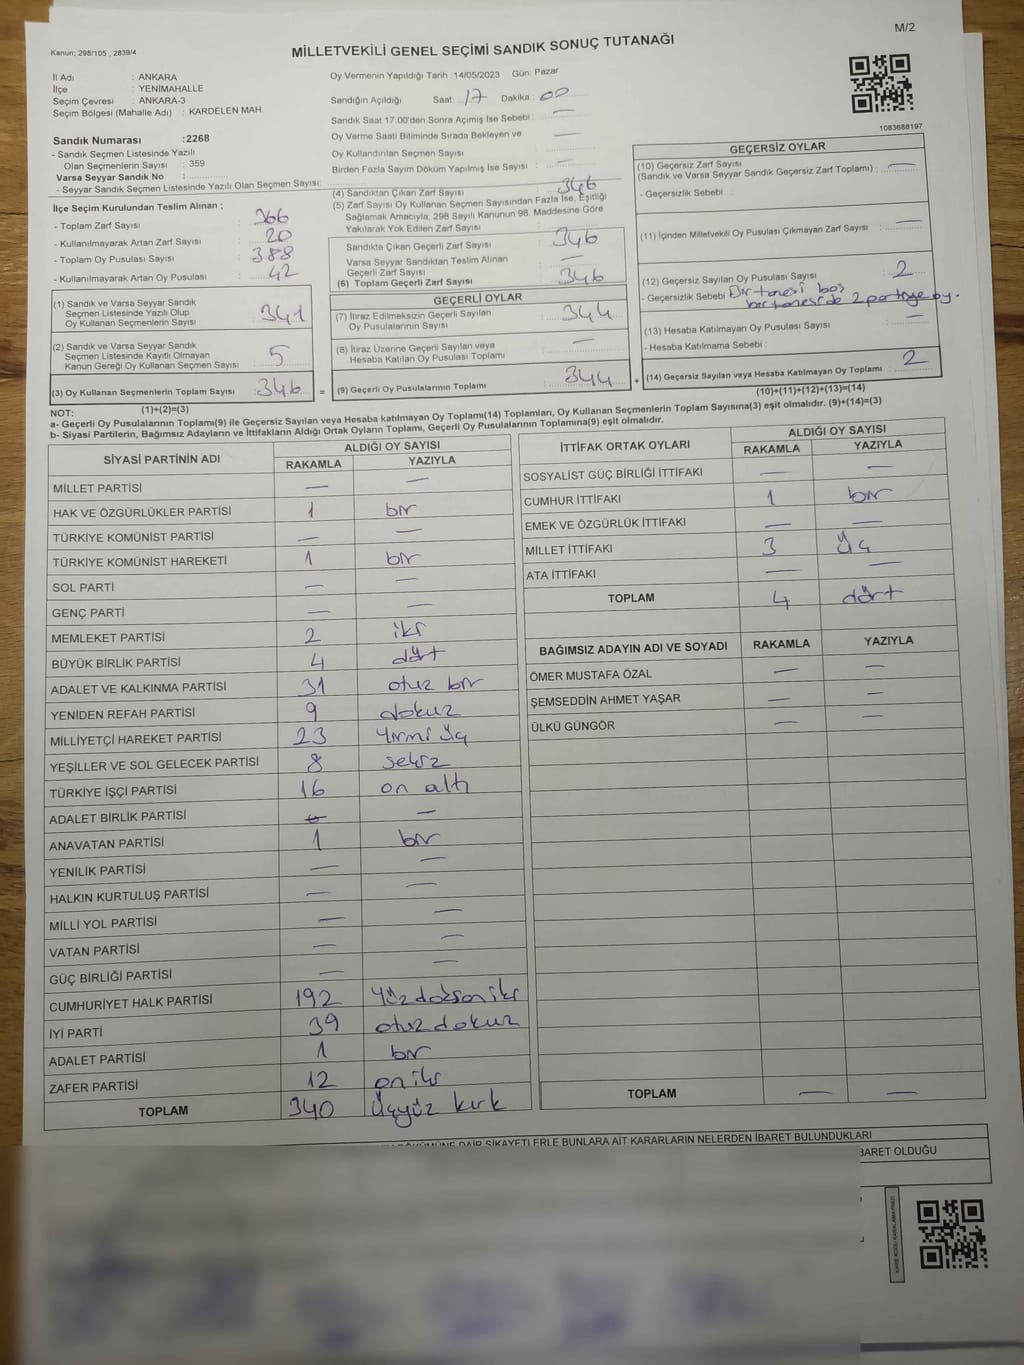 M/2
Kanun; 298/105 , 2839/4
MİLLETVEKİLİ GENEL SEÇİMİ SANDIK SONUÇ TUTANAĞI
İl Adı : ANKARA
İlçe : YENİMAHALLE
Seçim Çevresi : ANKARA-3
Seçim Bölgesi (Mahalle Adı) : KARDELEN MAH.
Sandık Numarası :2268
- Sandık Seçmen Listesinde Yazılı
Olan Seçmenlerin Sayısı : 359
Varsa Seyyar Sandık No :
- Seyyar Sandık Seçmen Listesinde Yazılı Olan Seçmen Sayısı:
Oy Vermenin Yapıldığı Tarih :14/05/2023 Gün: Pazar
Sandığın Açıldığı Saat: 17 Dakika: 00
Sandık Saat 17.00'den Sonra Açımış İse Sebebi : —
Oy Verme Saati Bitiminde Sırada Bekleyen ve —
Oy Kullandırılan Seçmen Sayısı
Birden Fazla Sayım Döküm Yapılmış İse Sayısı : —
1083688197
İlçe Seçim Kurulundan Teslim Alınan ;
- Toplam Zarf Sayısı : 366
- Kullanılmayarak Artan Zarf Sayısı : 20
- Toplam Oy Pusulası Sayısı : 388
- Kullanılmayarak Artan Oy Pusulası : 42
(1) Sandık ve Varsa Seyyar Sandık
Seçmen Listesinde Yazılı Olup
Oy Kullanan Seçmenlerin Sayısı : 341
(2) Sandık ve Varsa Seyyar Sandık
Seçmen Listesinde Kayıtlı Olmayan
Kanun Gereği Oy Kullanan Seçmen Sayısı : 5
(3) Oy Kullanan Seçmenlerin Toplam Sayısı : 346 =
(1)+(2)=(3)
(4) Sandıktan Çıkan Zarf Sayısı : 346
(5) Zarf Sayısı Oy Kullanan Seçmen Sayısından Fazla İse, Eşitliği
Sağlamak Amacıyla; 298 Sayılı Kanunun 98. Maddesine Göre
Yakılarak Yok Edilen Zarf Sayısı : —
Sandıkta Çıkan Geçerli Zarf Sayısı : 346
Varsa Seyyar Sandıktan Teslim Alınan
Geçerli Zarf Sayısı : —
(6) Toplam Geçerli Zarf Sayısı : 346
GEÇERLİ OYLAR
(7) İtiraz Edilmeksizin Geçerli Sayılan
Oy Pusulalarının Sayısı : 344
(8) İtiraz Üzerine Geçerli Sayılan veya
Hesaba Katılan Oy Pusulası Toplamı : —
(9) Geçerli Oy Pusulalarının Toplamı : 344 +
GEÇERSİZ OYLAR
(10) Geçersiz Zarf Sayısı
(Sandık ve Varsa Seyyar Sandık Geçersiz Zarf Toplamı) : —
- Geçersizlik Sebebi :
(11) İçinden Milletvekili Oy Pusulası Çıkmayan Zarf Sayısı : —
(12) Geçersiz Sayılan Oy Pusulası Sayısı : 2
- Geçersizlik Sebebi : Bir tanesi boş
bir tanesi de 2 partiye oy.
(13) Hesaba Katılmayan Oy Pusulası Sayısı : —
- Hesaba Katılmama Sebebi :
(14) Geçersiz Sayılan veya Hesaba Katılmayan Oy Toplamı : 2
(10)+(11)+(12)+(13)=(14)
NOT:
a- Geçerli Oy Pusulalarının Toplamı(9) ile Geçersiz Sayılan veya Hesaba katılmayan Oy Toplamı(14) Toplamları, Oy Kullanan Seçmenlerin Toplam Sayısına(3) eşit olmalıdır. (9)+(14)=(3)
b- Siyasi Partilerin, Bağımsız Adayların ve İttifakların Aldığı Ortak Oyların Toplamı, Geçerli Oy Pusulalarının Toplamına(9) eşit olmalıdır.
SİYASİ PARTİNİN ADI ALDIĞI OY SAYISI
RAKAMLA YAZIYLA
MİLLET PARTİSİ — —
HAK VE ÖZGÜRLÜKLER PARTİSİ 1 bir
TÜRKİYE KOMÜNİST PARTİSİ — —
TÜRKİYE KOMÜNİST HAREKETİ 1 bir
SOL PARTİ — —
GENÇ PARTİ — —
MEMLEKET PARTİSİ 2 iki
BÜYÜK BİRLİK PARTİSİ 4 dört
ADALET VE KALKINMA PARTİSİ 31 otuz bir
YENİDEN REFAH PARTİSİ 9 dokuz
MİLLİYETÇİ HAREKET PARTİSİ 23 Yirmi üç
YEŞİLLER VE SOL GELECEK PARTİSİ 8 sekiz
TÜRKİYE İŞÇİ PARTİSİ 16 on altı
ADALET BİRLİK PARTİSİ — —
ANAVATAN PARTİSİ 1 bir
YENİLİK PARTİSİ — —
HALKIN KURTULUŞ PARTİSİ — —
MİLLİ YOL PARTİSİ — —
VATAN PARTİSİ — —
GÜÇ BİRLİĞİ PARTİSİ — —
CUMHURİYET HALK PARTİSİ 192 Yüz doksan iki
İYİ PARTİ 39 otuz dokuz
ADALET PARTİSİ 1 bir
ZAFER PARTİSİ 12 on iki
TOPLAM 340 Üçyüz kırk
İTTİFAK ORTAK OYLARI ALDIĞI OY SAYISI
RAKAMLA YAZIYLA
SOSYALİST GÜÇ BİRLİĞİ İTTİFAKI — —
CUMHUR İTTİFAKI 1 bir
EMEK VE ÖZGÜRLÜK İTTİFAKI — —
MİLLET İTTİFAKI 3 Üç
ATA İTTİFAKI — —
TOPLAM 4 dört
BAĞIMSIZ ADAYIN ADI VE SOYADI RAKAMLA YAZIYLA
ÖMER MUSTAFA ÖZAL — —
ŞEMSEDDİN AHMET YAŞAR — —
ÜLKÜ GÜNGÖR — —
TOPLAM — —
DAİR ŞİKAYETLERLE BUNLARA AİT KARARLARIN NELERDEN İBARET BULUNDUKLARI
BARET OLDUĞU